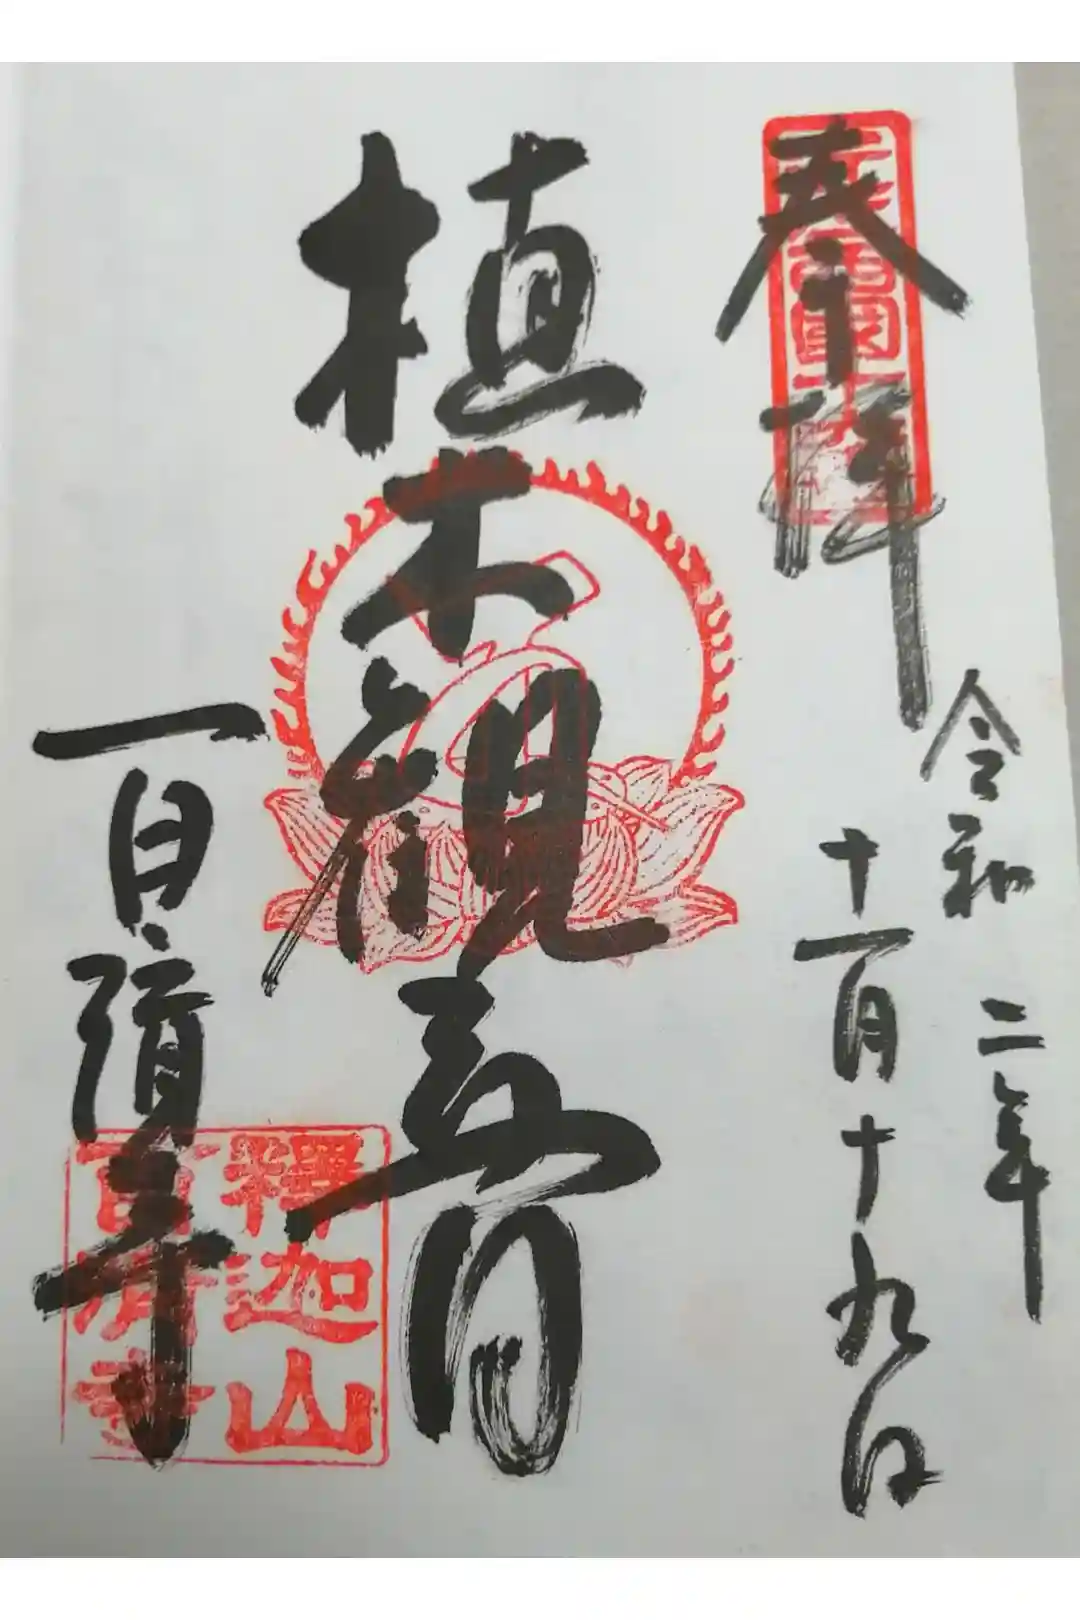 奉拝
令和二年
十一月十九日
植木観音
百済寺
釋迦山
百濟寺